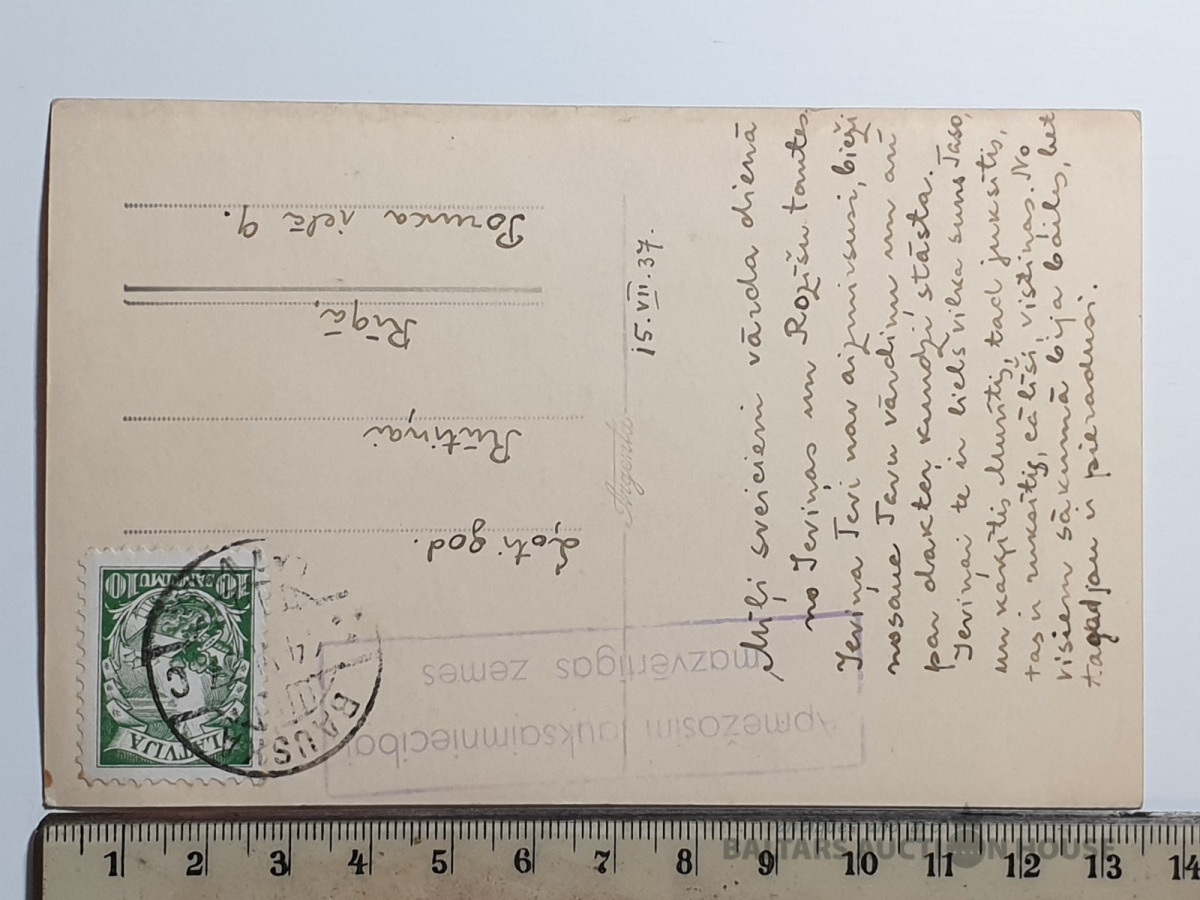 Mīļi sveicieni vārda dienā
no Ieviņas un Rozīšu tantes.
Ieviņa Tevi nav aizmirsusi, bieži
nosauc Tavu vārdiņu un arī
par dakter, kundzi stāsta.
Ieviņai te ir liels vilka suns Taso,
un kaķītis Muritis, tad juksītis,
tas ir ruksītis, cālīši, vistiņas. No
visiem sākumā bija bailes, bet
tagad jau ir pieradusi.
15.VII.37.
Ļoti god.
Rūtiņai
Rīgā,
Poruka ielā 9.
LATVIJA
10 10
SANTIMU
BAUSKA
Apmežosim lauksaimniecībai
mazvērtīgas zemes
BALTARS AUCTION HOUSE
1 2 3 4 5 6 7 8 9 10 11 12 13 14